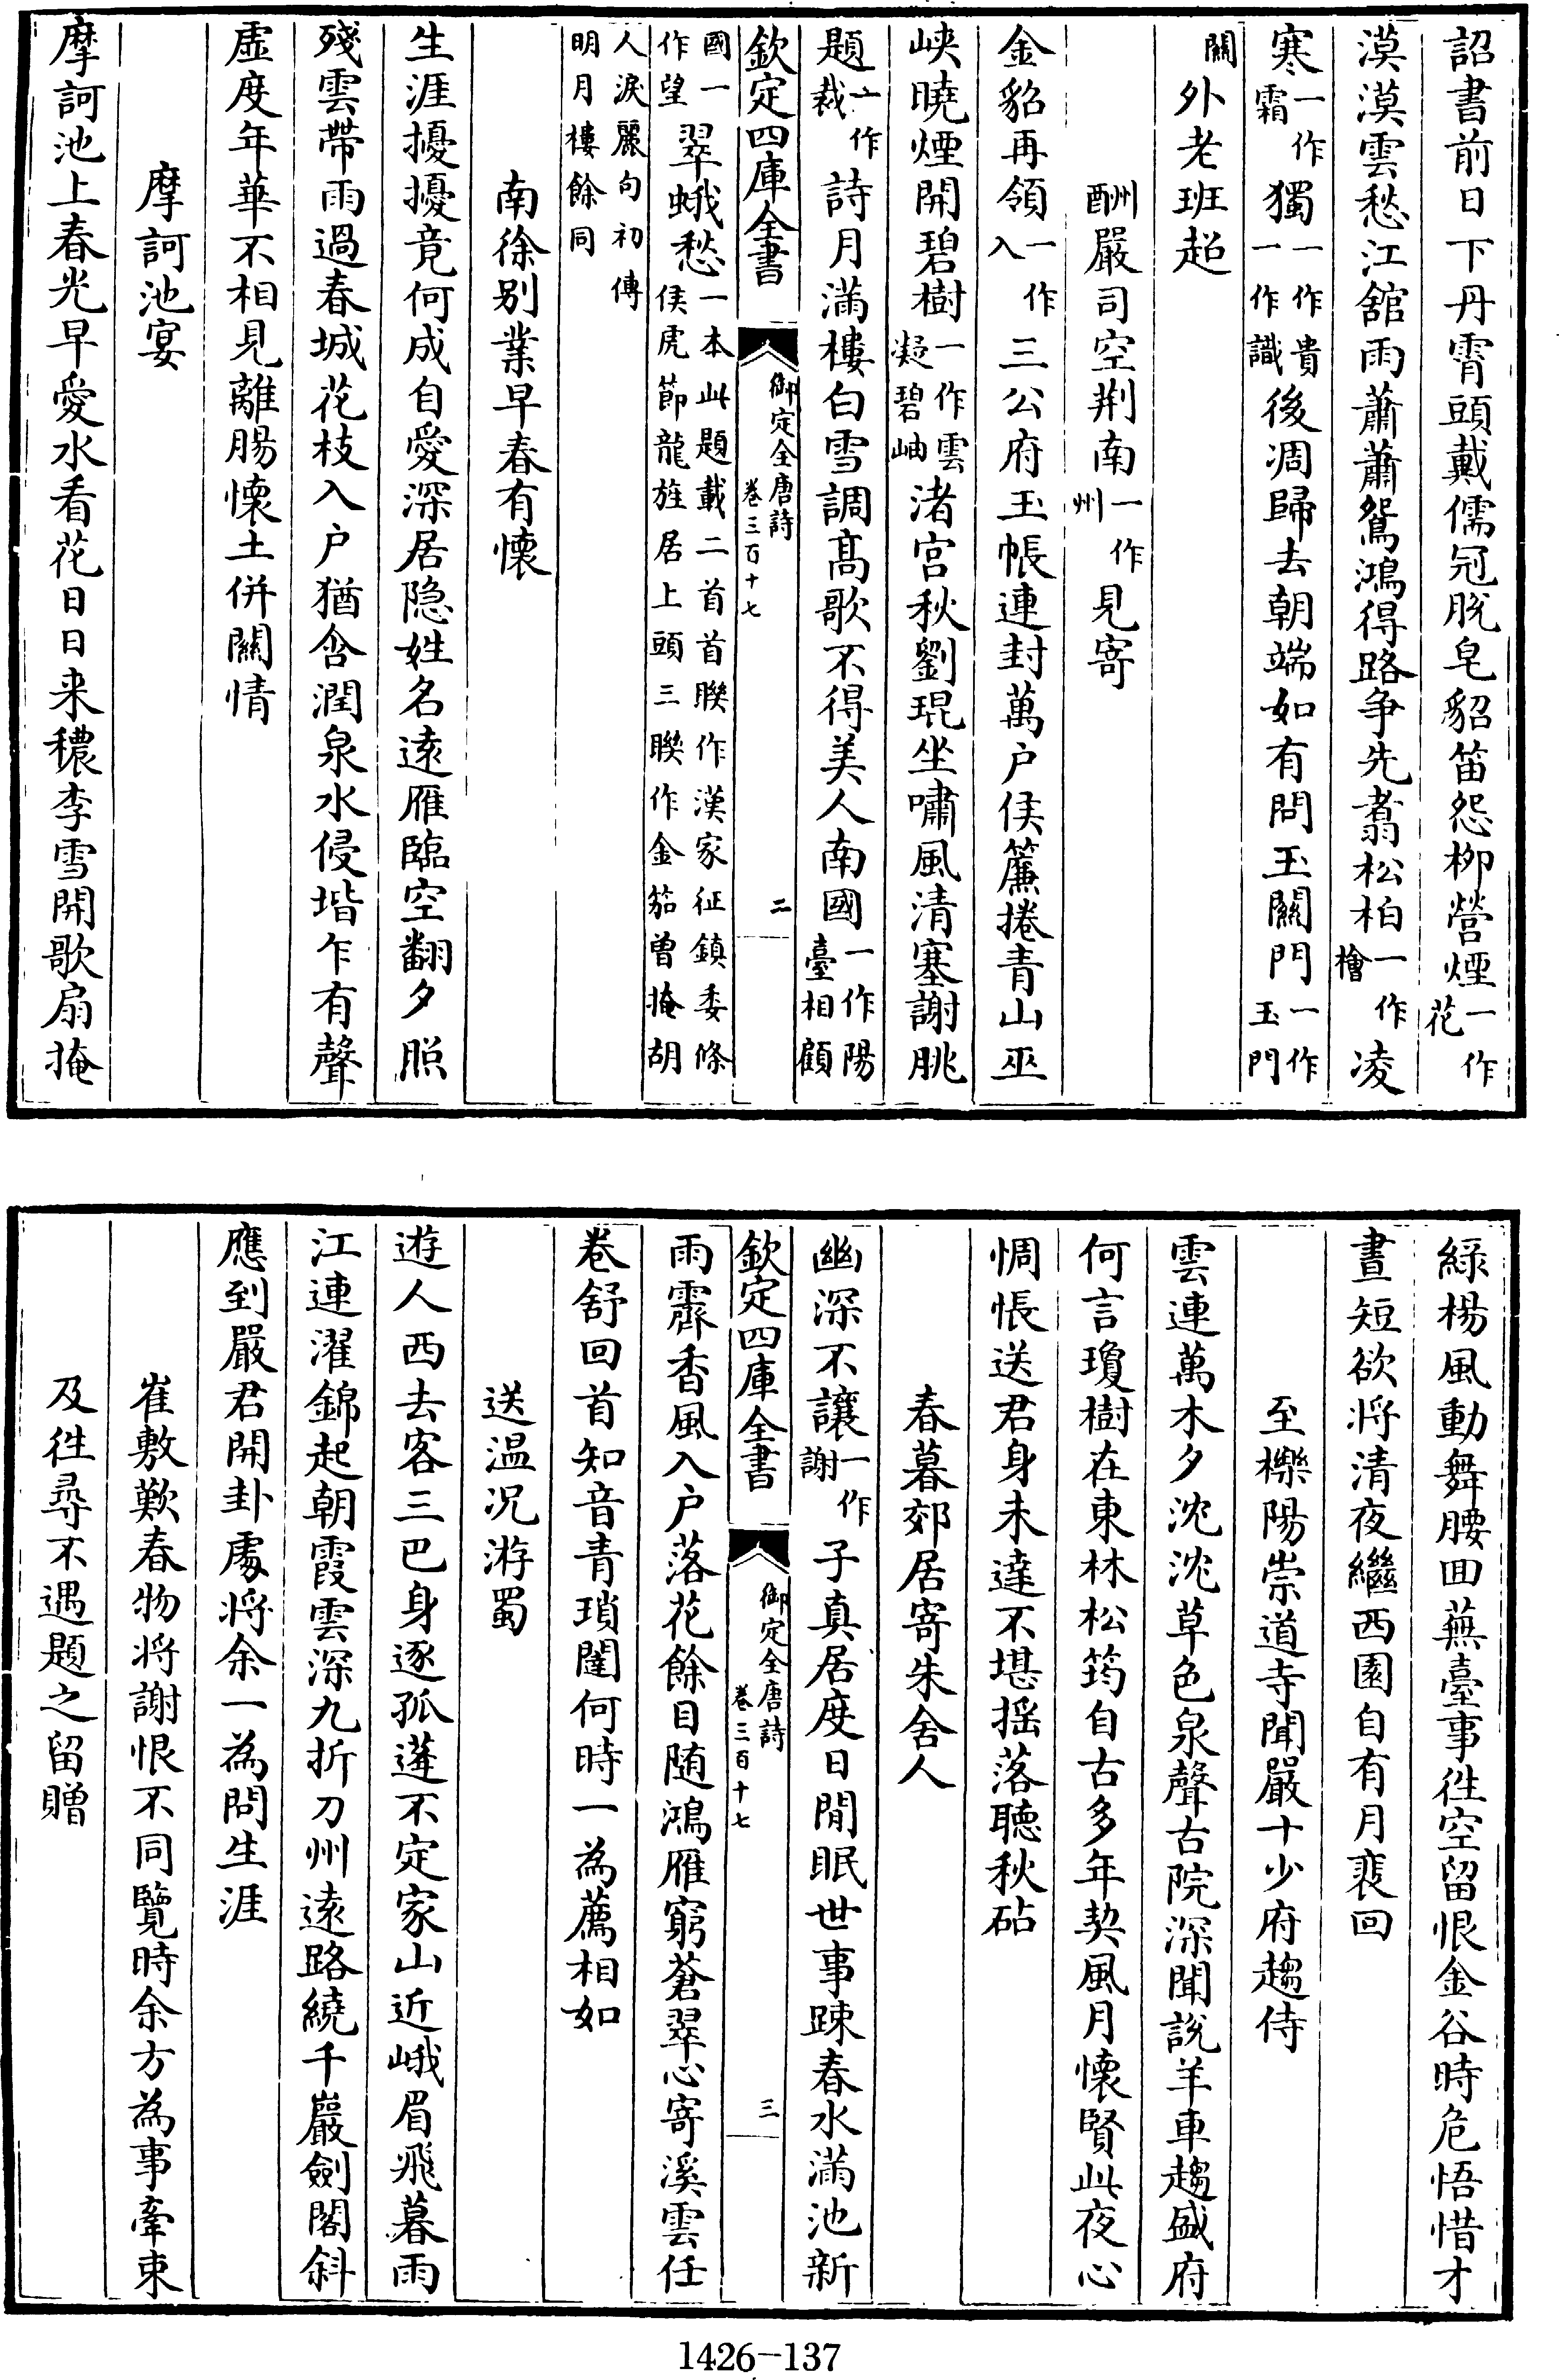 詔書前日下丹霄頭戴儒冠脫皂貂笛怨柳營煙一作花
漠漠雲愁江館雨蕭蕭鴛鴻得路爭先翥松柏一作檜凌
寒一作霜獨一作貴一作識後凋歸去朝端如有問玉關門一作玉門
關外老班超
酬嚴司空荆南一作州見寄
金貂再領一作入三公府玉帳連封萬户侯簾捲青山巫
峽曉煙開碧樹一作雲凝碧岫渚宮秋劉琨坐嘯風清塞謝朓
題一作裁詩月滿樓白雪調髙歌不得美人南國一作陽臺相顧
欽定四庫全書
御定全唐詩
卷三百十七
二
國一作望翠蛾愁一本此題載二首首聯作漢家征鎮委條侯虎節龍旌居上頭三聯作金笳曾掩胡
人淚麗句初傳明月樓餘同
南徐别業早春有懷
生涯擾擾竟何成自愛深居隐姓名遠雁臨空翻夕照
殘雲帶雨過春城花枝入户猶含潤泉水侵堦乍有聲
虛度年華不相見離腸懷土併關情
摩訶池宴
摩訶池上春光早愛水看花日日来穠李雪開歌扇掩
綠楊風動舞腰回蕪臺事往空留恨金谷時危悟惜才
晝短欲將清夜繼西園自有月裵回
至櫟陽崇道寺聞嚴十少府趨侍
雲連萬木夕沈沈草色泉聲古院深聞說羊車趨盛府
何言瓊樹在東林松筠自古多年契風月懷賢此夜心
惆悵送君身未達不堪揺落聽秋砧
春暮郊居寄朱舍人
幽深不讓一作謝子真居度日閒眠世事踈春水滿池新
欽定四庫全書
御定全唐詩
卷三百十七
三
雨霽香風入户落花餘目随鴻雁窮蒼翠心寄溪雲任
卷舒回首知音青瑣闥何時一為薦相如
送温況游蜀
遊人西去客三巴身逐孤蓬不定家山近峨眉飛暮雨
江連濯錦起朝霞雲深九折刀州遠路繞千巖劍閣斜
應到嚴君開卦處將余一為問生涯
崔敷歎春物將謝恨不同覽時余方為事牽束
及往尋不遇題之留贈
1426-137